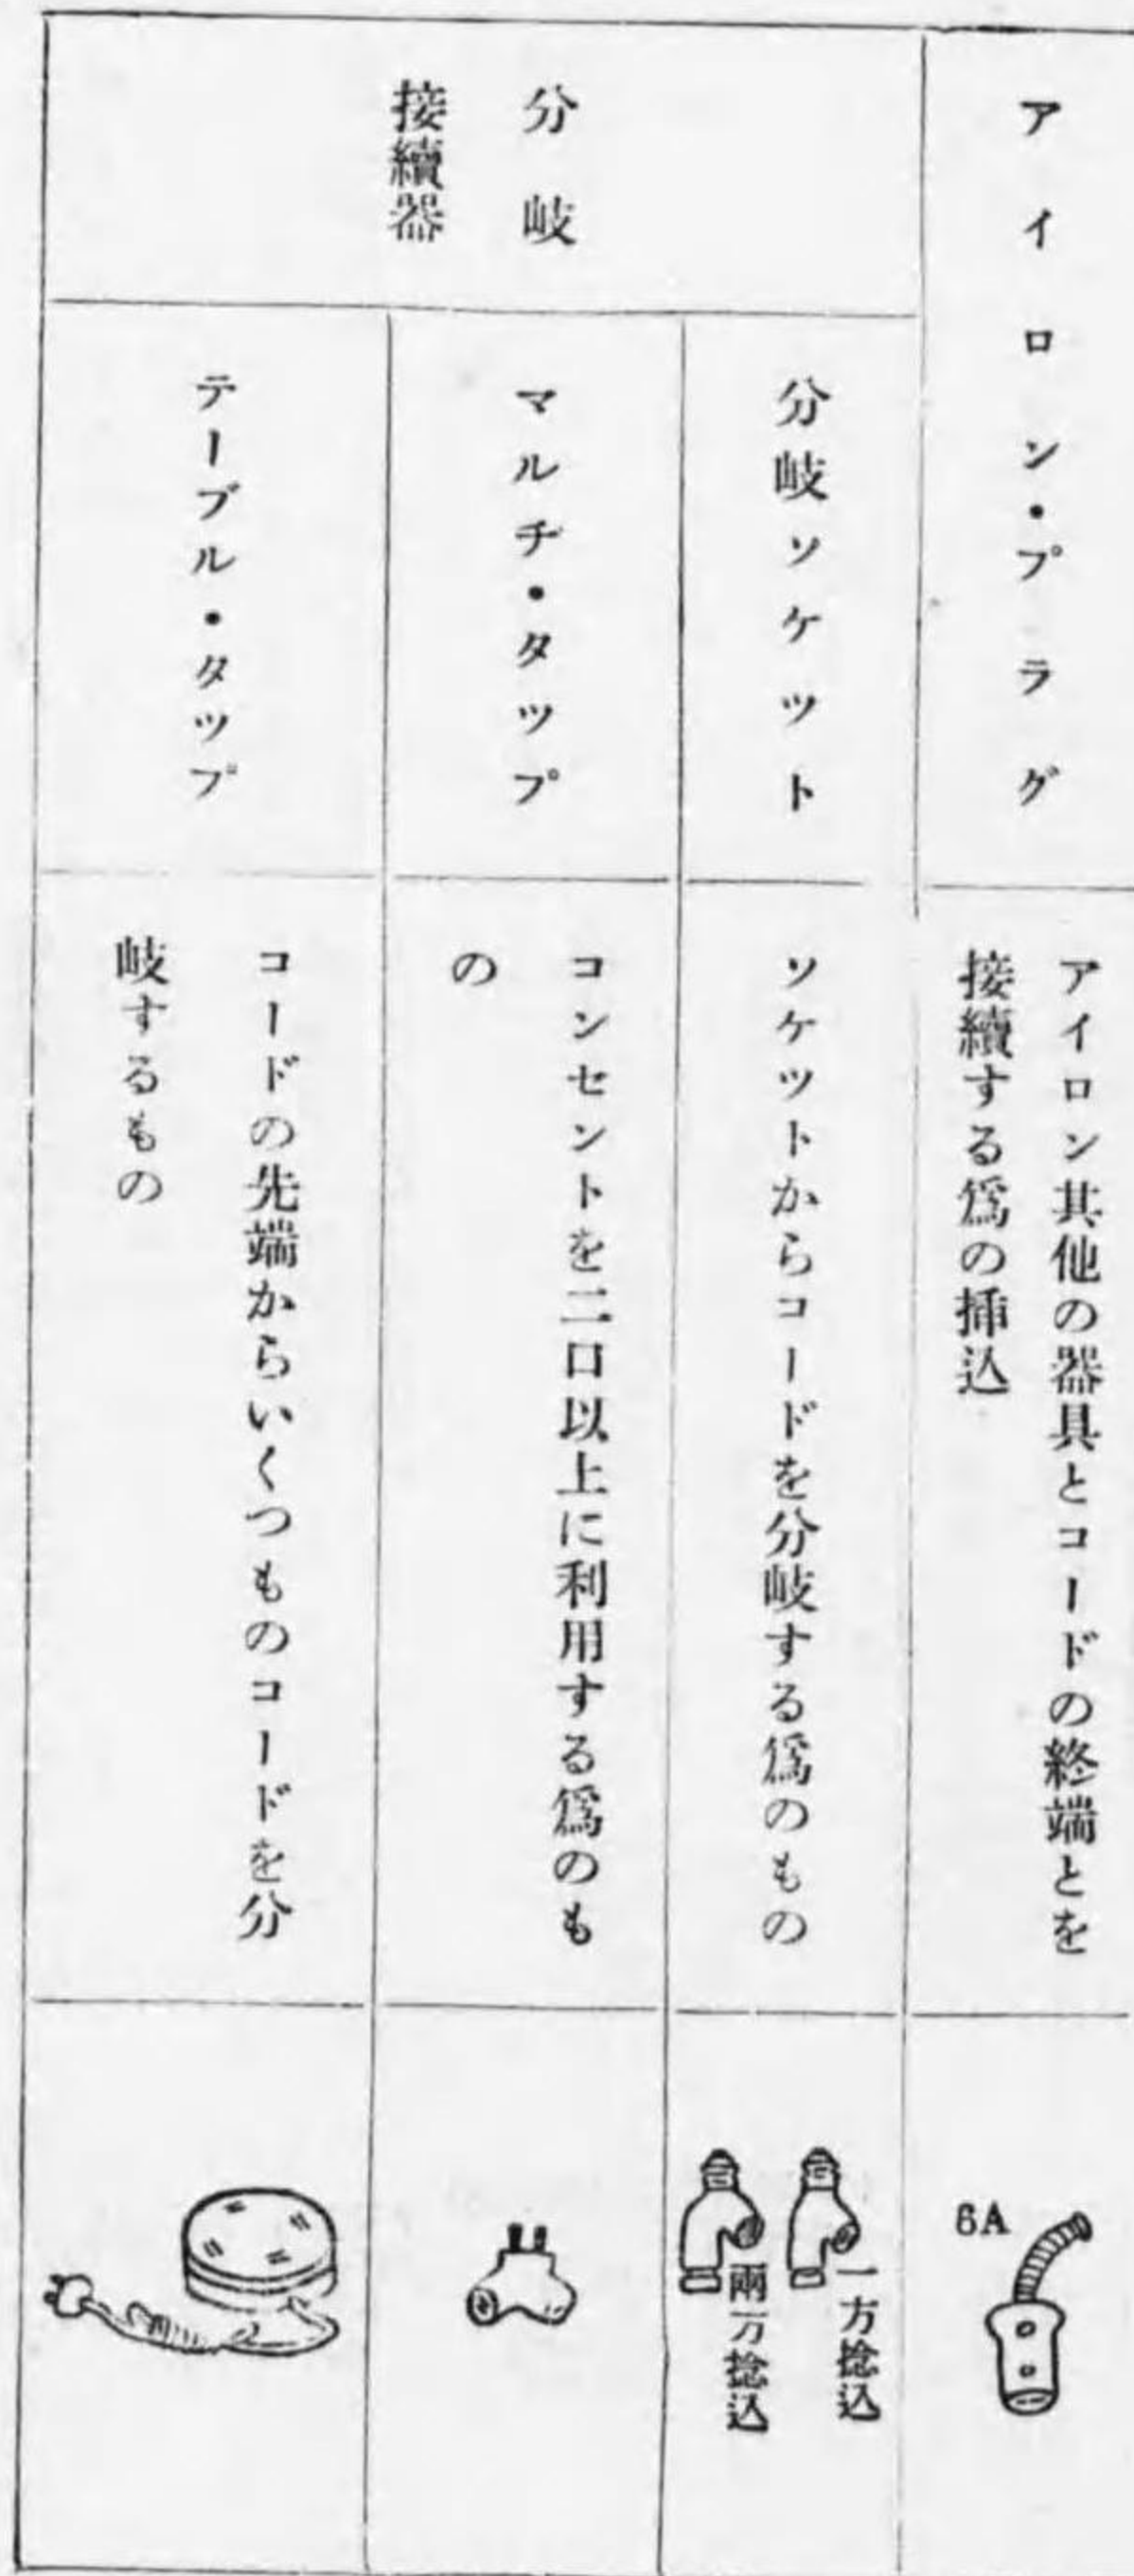 アイロン・プラグ
アイロン其他の器具とコードの終端とを
接續する爲の挿込
6A
分岐
接續器
分岐ソケツト
ソケツトからコードを分岐する爲のもの
一方捻込
兩方捻込
マルチ・タツプ
コンセントを二口以上に利用する爲のも
の
テーブル・タツプ
コードの先端からいくつものコードを分
岐するもの